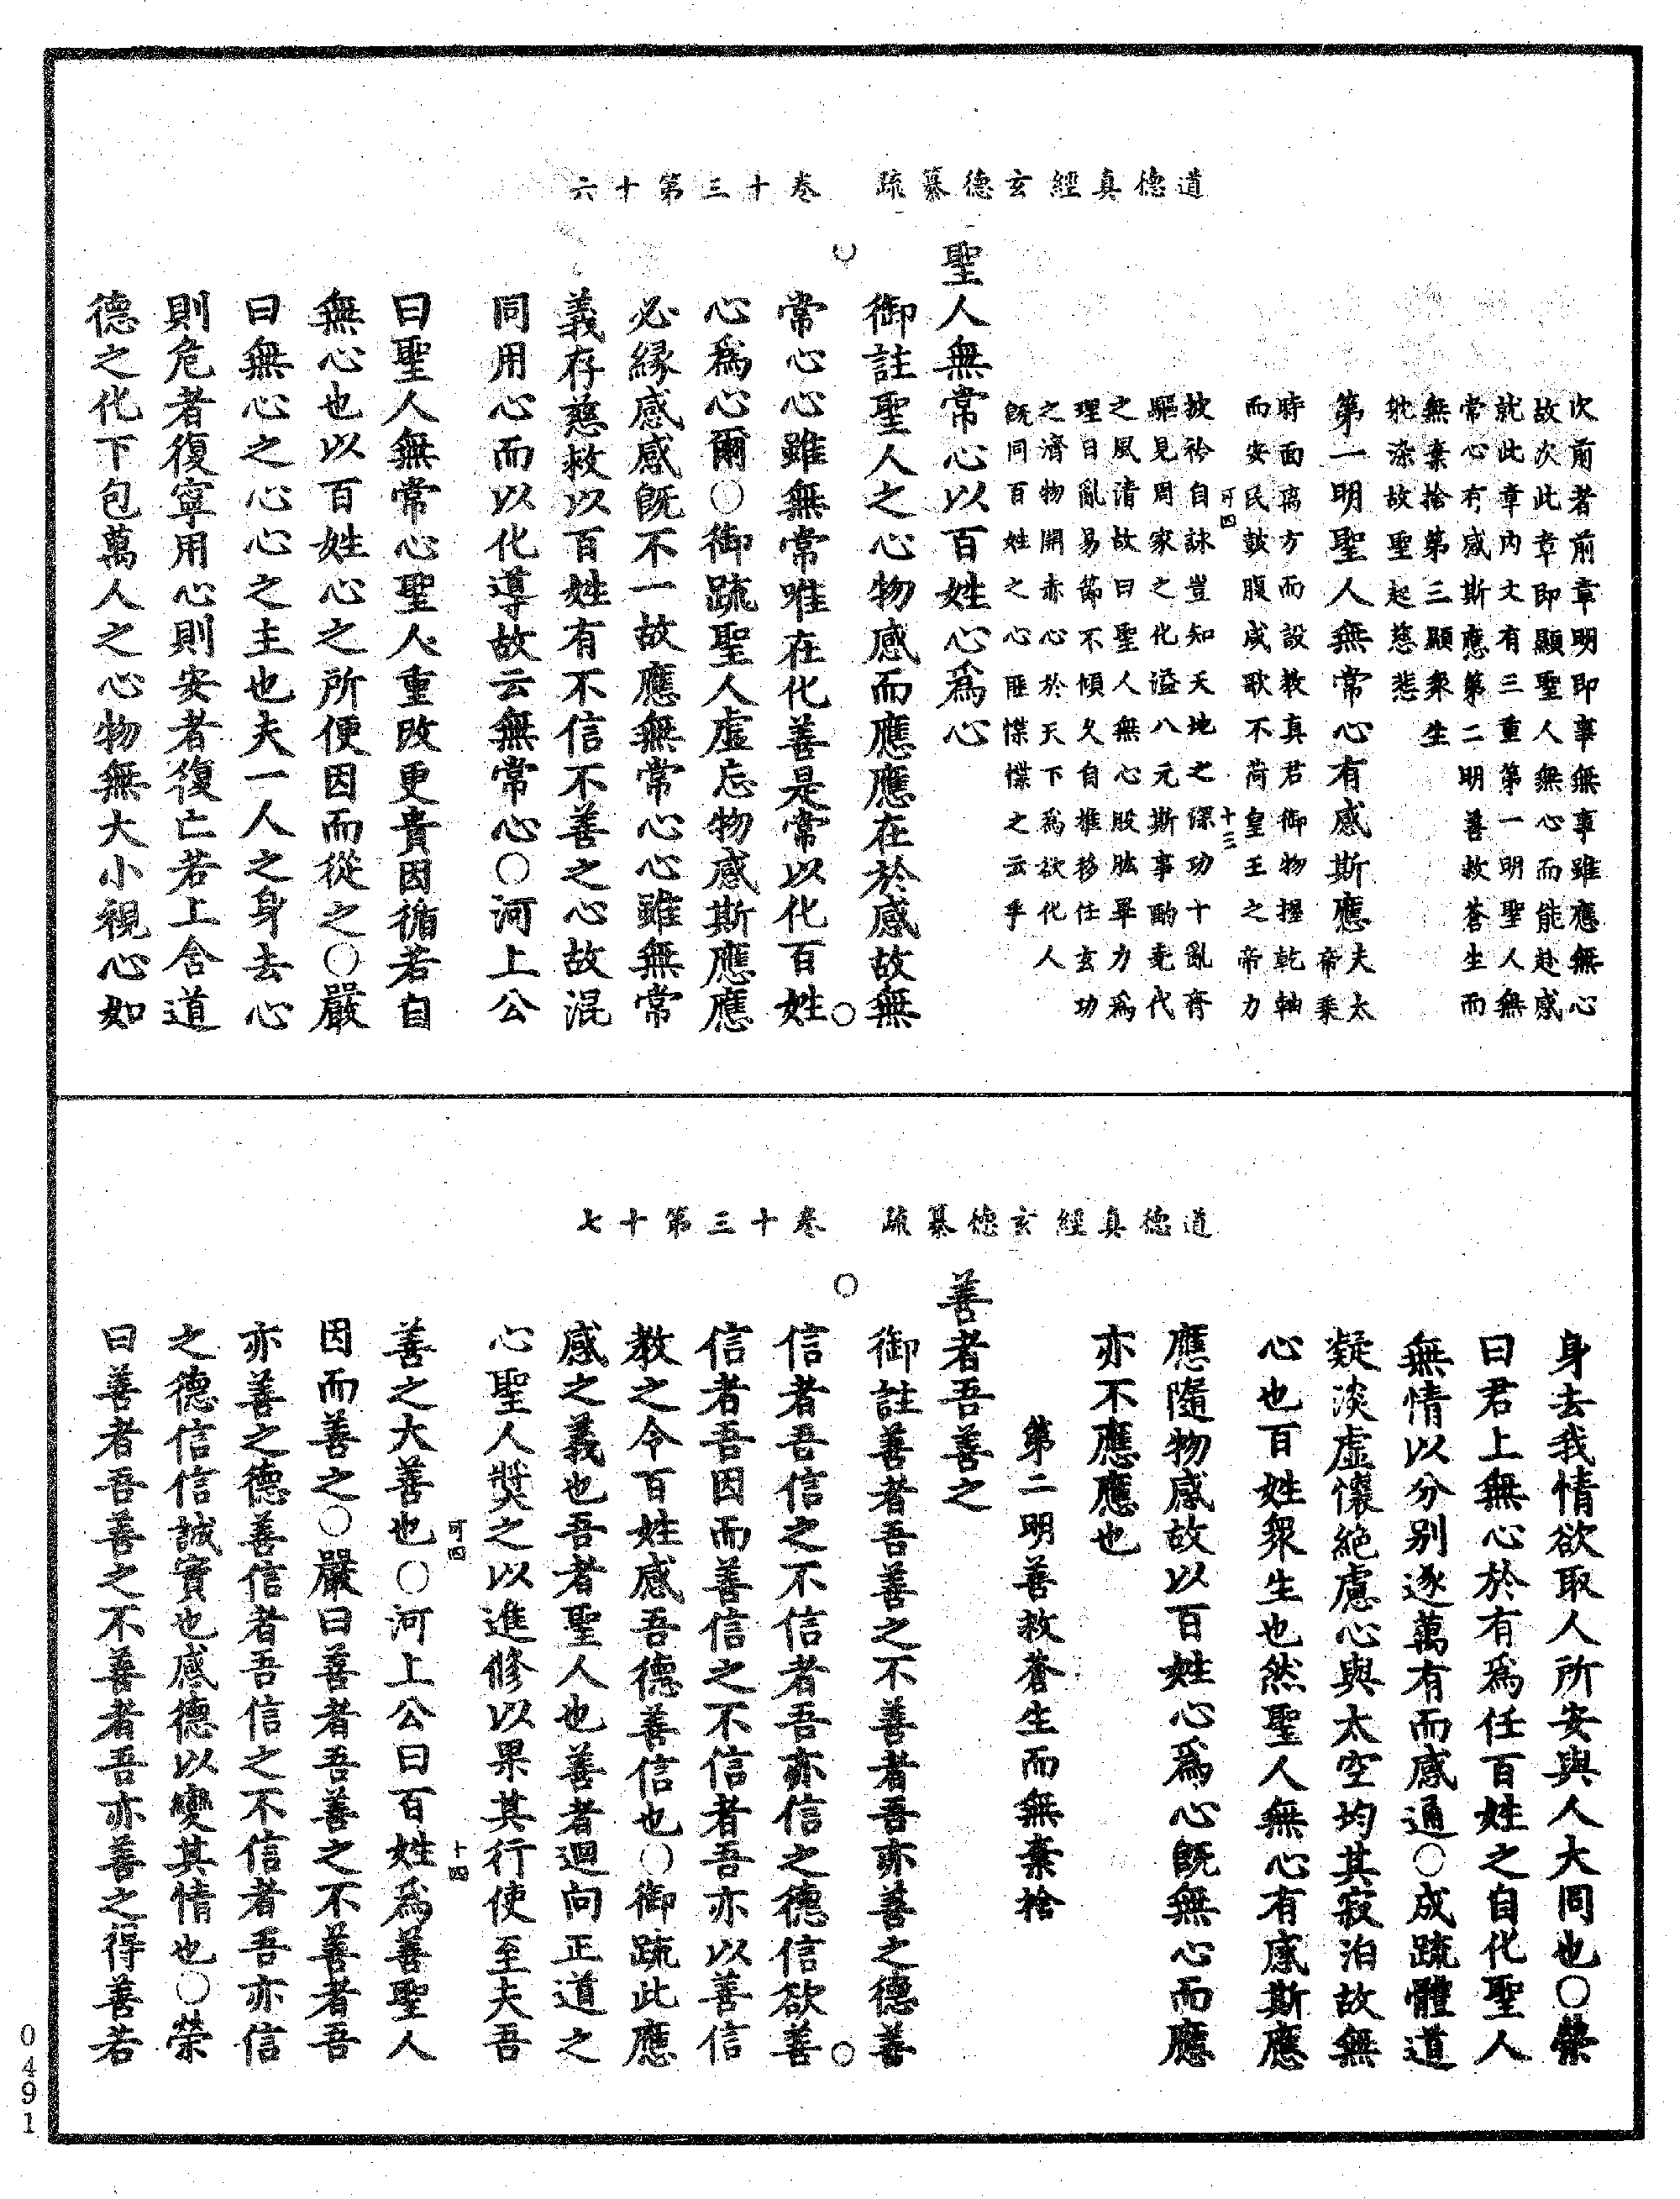 道德真經玄德纂疏　卷十三第十六
次前者前章明即事無事雖應無心
故次此章即顯聖人無心而能赴感
就此章內文有三重第一明聖人無
常心有感斯應第二明善救蒼生而
無棄捨第三顯衆生
躭染故聖起慈悲
第一明聖人無常心有感斯應夫太帝乘
時面离方而設教真君御物握乾軸
而安民鼓腹咸歌不荷皇王之帝力
可四　十三
披衿自詠豈知天地之深功十亂齊
驅見周家之化溢八元斯事酌堯代
之風清故曰聖人無心股肱畢力爲
理日亂易節不傾久自推移任玄功
之濟物開赤心於天下爲欲化人
旣同百姓之心匪惵惵之云乎
聖人無常心以百姓心爲心
御註聖人之心物感而應應在於感故無
常心心雖無常唯在化善是常以化百姓
心爲心爾○御疏聖人虛忘物感斯應應
必緣感感旣不一故應無常心心雖無常
義存慈救以百姓有不信不善之心故混
同用心而以化導故云無常心○河上公
曰聖人無常心聖人重改更貴因循若自
無心也以百姓心之所便因而從之○嚴
曰無心之心心之主也夫一人之身去心
則危者復寧用心則安者復亡若上含道
德之化下包萬人之心物無大小視心如
道德真經玄德纂疏　卷十三第十七
身去我情欲取人所安與人大同也○榮
曰君上無心於有爲任百姓之自化聖人
無情以分別逐萬有而感通○成疏體道
凝淡虛懷絕慮心與太空均其寂泊故無
心也百姓衆生也然聖人無心有感斯應
應隨物感故以百姓心爲心旣無心而應
亦不應應也
第二明善救蒼生而無棄捨
善者吾善之
御註善者吾善之不善者吾亦善之德善
信者吾信之不信者吾亦信之德信欲善
信者吾因而善信之不信者吾亦以善信
教之令百姓感吾德善信也○御疏此應
感之義也吾者聖人也善者迴向正道之
心聖人獎之以進修以果其行使至夫吾
可四　十四
善之大善也○河上公曰百姓爲善聖人
因而善之○嚴曰善者吾善之不善者吾
亦善之德善信者吾信之不信者吾亦信
之德信信誠實也感德以變其情也○榮
曰善者吾善之不善者吾亦善之得善若
0491